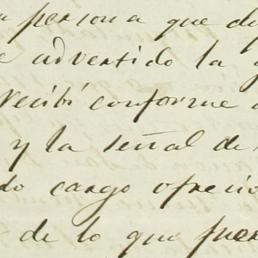 persona que de
advertido la
recibí conforme
y la señal de
do cargo ofreció
de lo que fuer